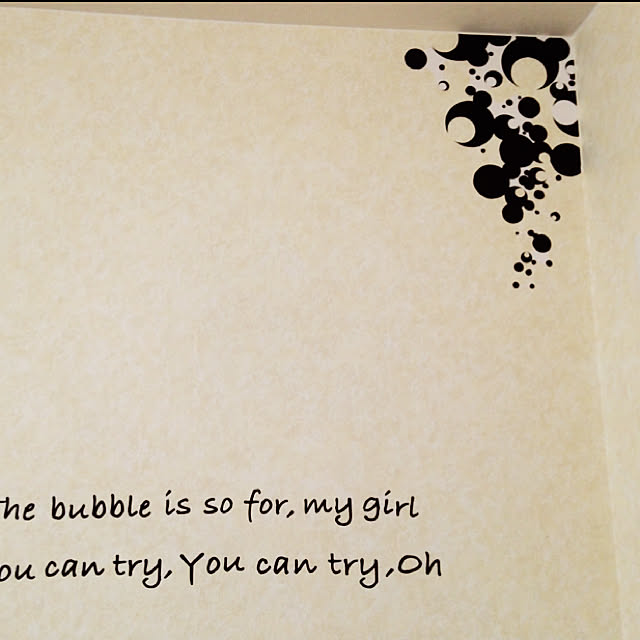 The bubble is so for, my girl
ou can try, You can try, Oh